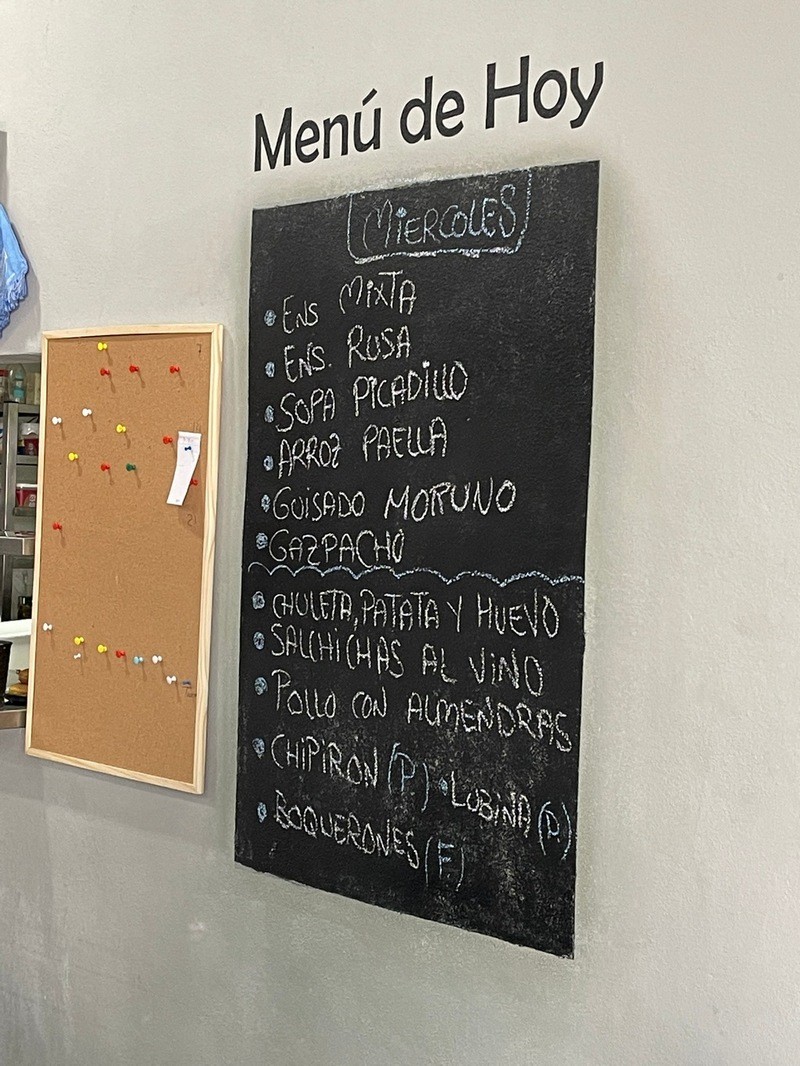 Menú de Hoy
MIERCOLES
ENS MIXTA
ENS. RUSA
SOPA PICADILLO
ARROZ PAELLA
GUISADO MORUNO
GAZPACHO
CHULETA, PATATA Y HUEVO
SALCHICHAS AL VINO
POLLO CON ALMENDRAS
CHIPIRON (P.) • LUBINA (P.)
BOQUERONES (F.)